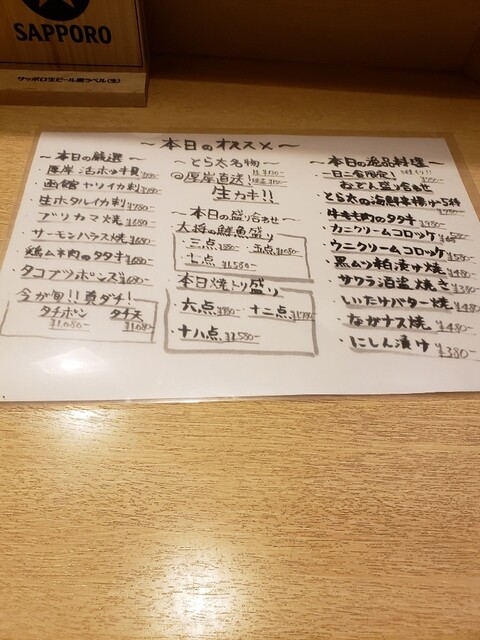 SAPPORO
サッポロ生ビール黒ラベル(生)
～本日のオススメ～
～本日の厳選～
・厚岸活ホッキ貝
・函館ヤリイカ刺
・生ホタルイカ刺 ¥780-
・ブリカマ焼 ¥680-
・サーモンハラス焼 ¥680-
・鶏ムネ肉のタタキ ¥680-
・タコブツポンズ ¥680-
今が旬!!真ダチ!
タチポン タチ天
¥1,080- ¥1,080-
～とら太名物～
◎厚岸直送!
生カキ!!
～本日の盛り合せ～
大将の鮮魚盛り
・三点 ・五点 ¥1,080-
・七点 ¥1,580-
本日焼トリ盛り
・六点 ・十二点
・十八点 ¥1,580-
～本日の逸品料理～
おでん盛り合せ
・とら太の海鮮串揚げ5種
・牛もも肉のタタキ
・カニクリームコロッケ
・ウニクリームコロッケ
・黒ムツ粕漬け焼 ¥480-
・サクラ酒盗焼き ¥380-
・いいたけバター焼 ¥480-
・ながナス焼 ¥480-
・にしん漬け ¥380-